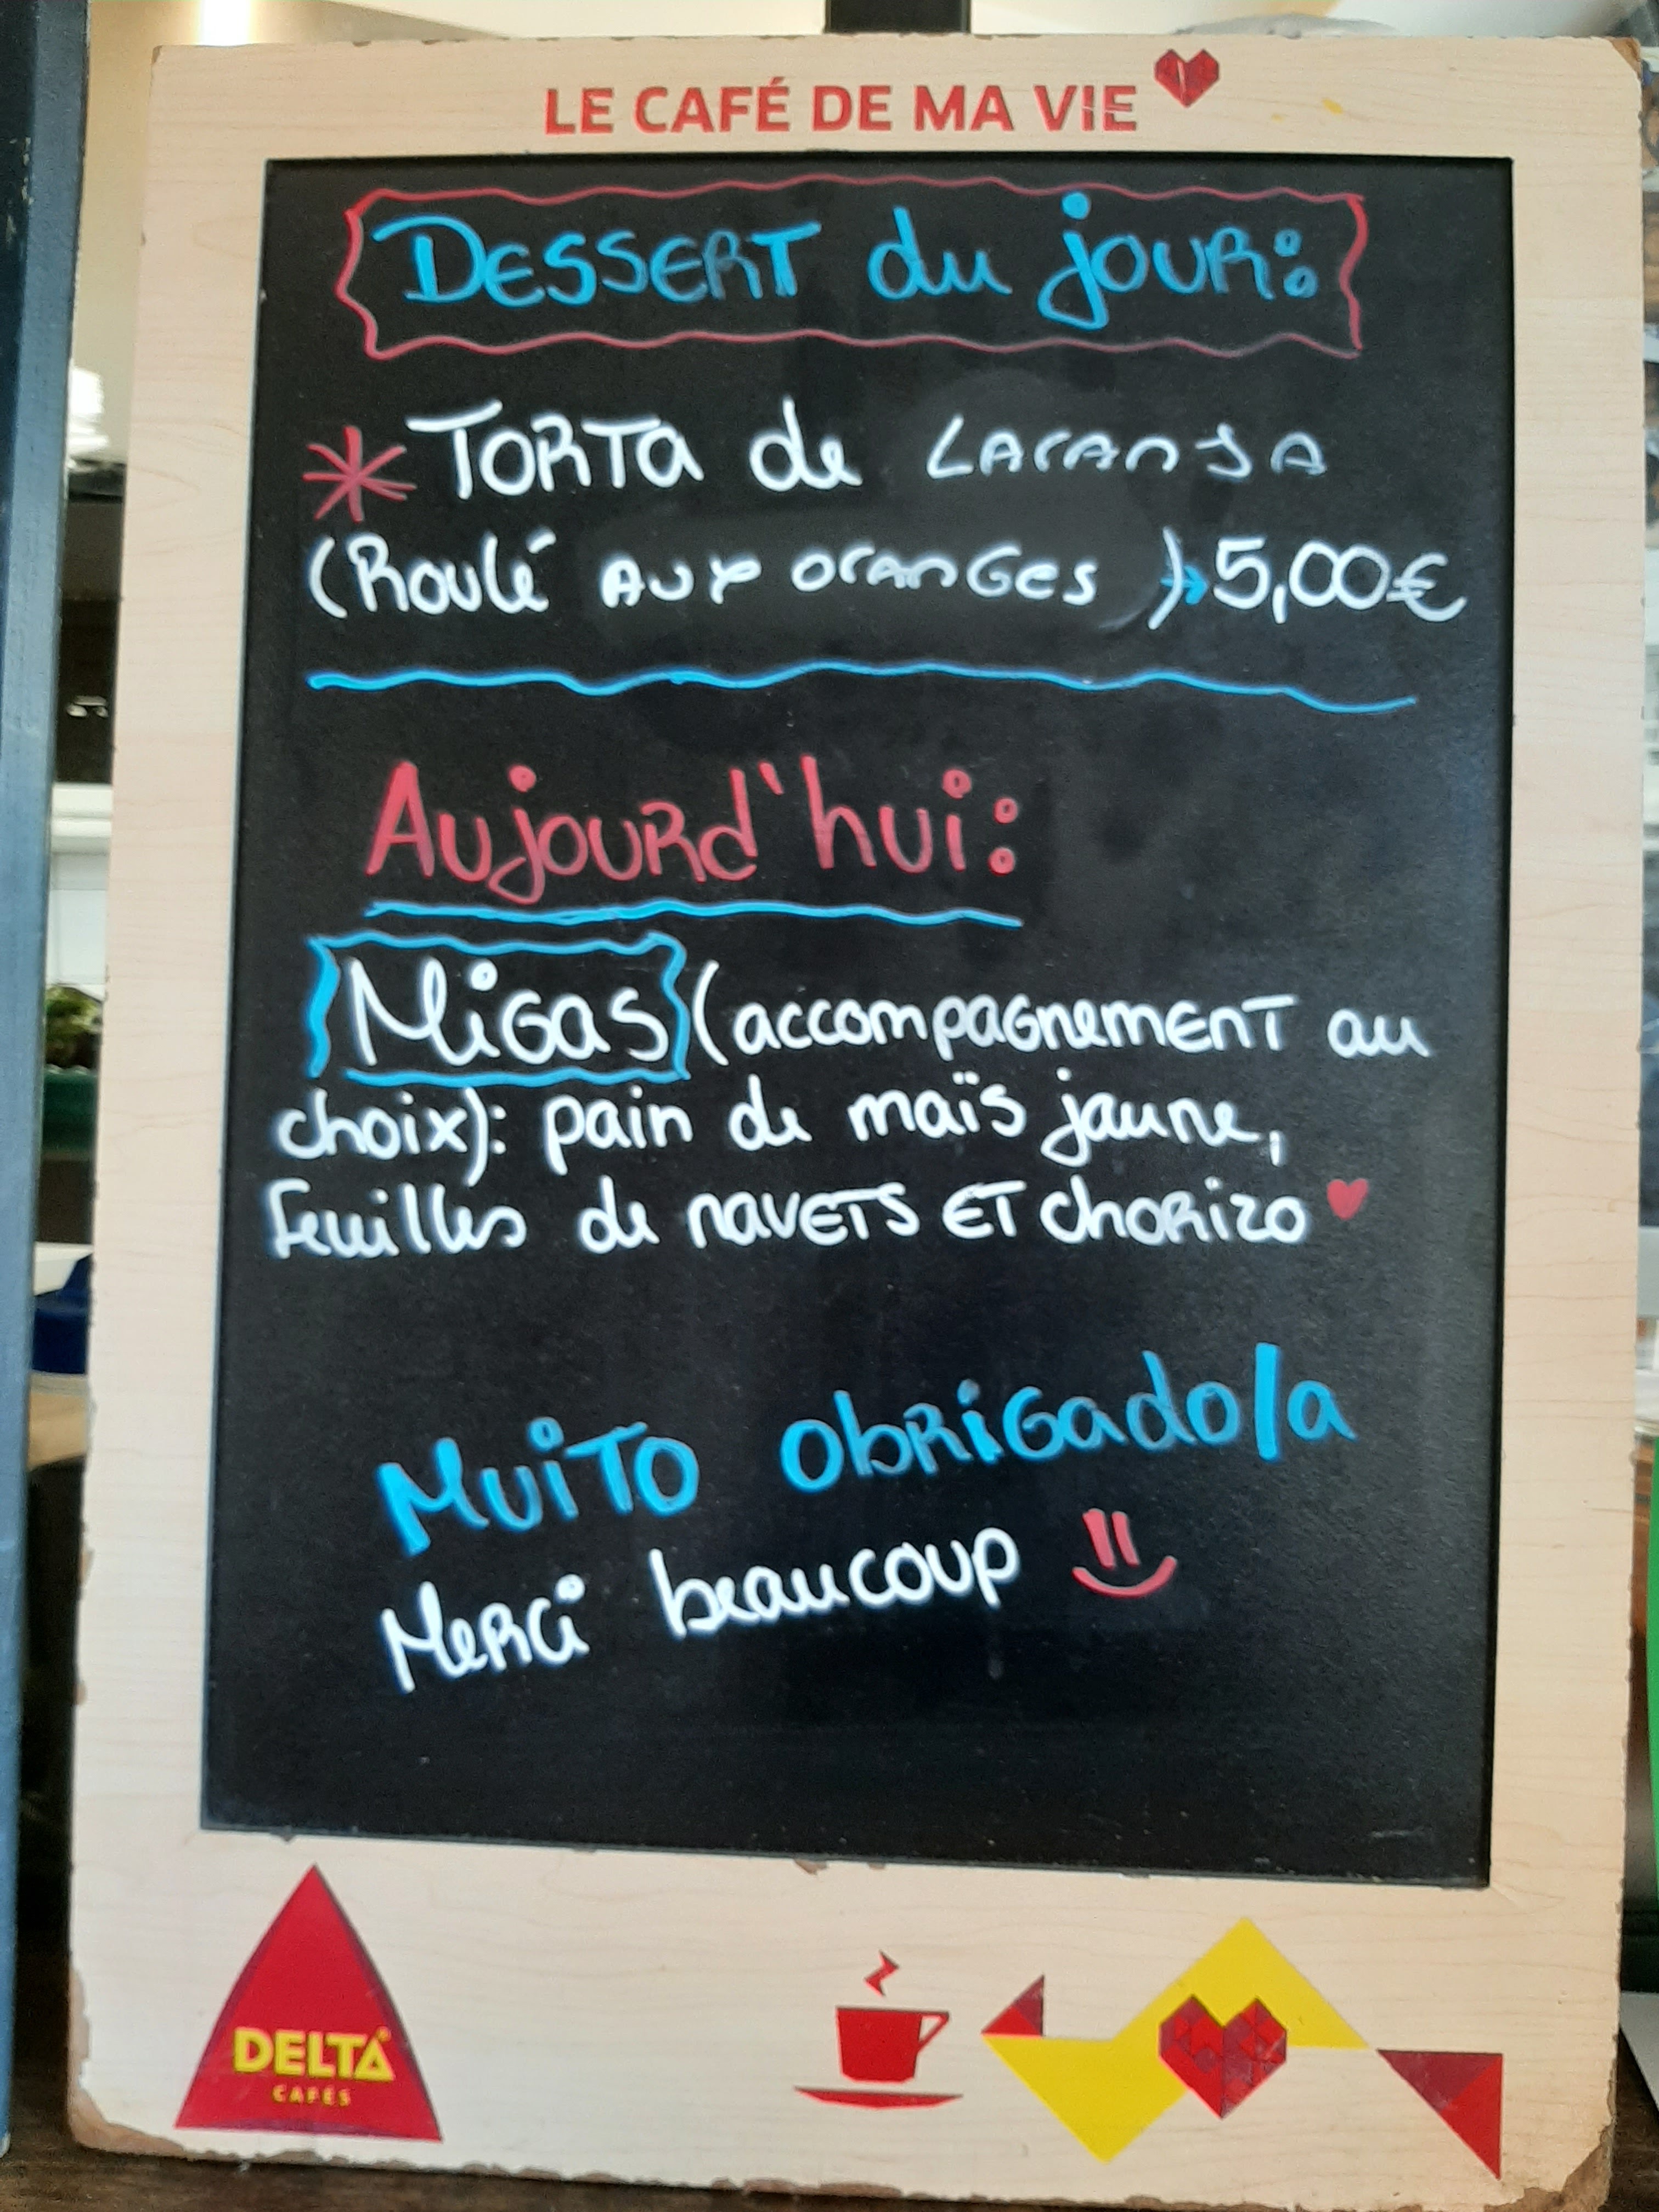 LE CAFÉ DE MA VIE
DESSERT du jour:
* TORTA de LARANJA
(Roulé AUX ORANGES) → 5,00€
Aujourd'hui:
Migas (accompagnement au
choix): pain de maïs jaune,
feuilles de navets ET chorizo ♥
Muito obrigado/a
Merci beaucoup
DELTA
CAFÉS